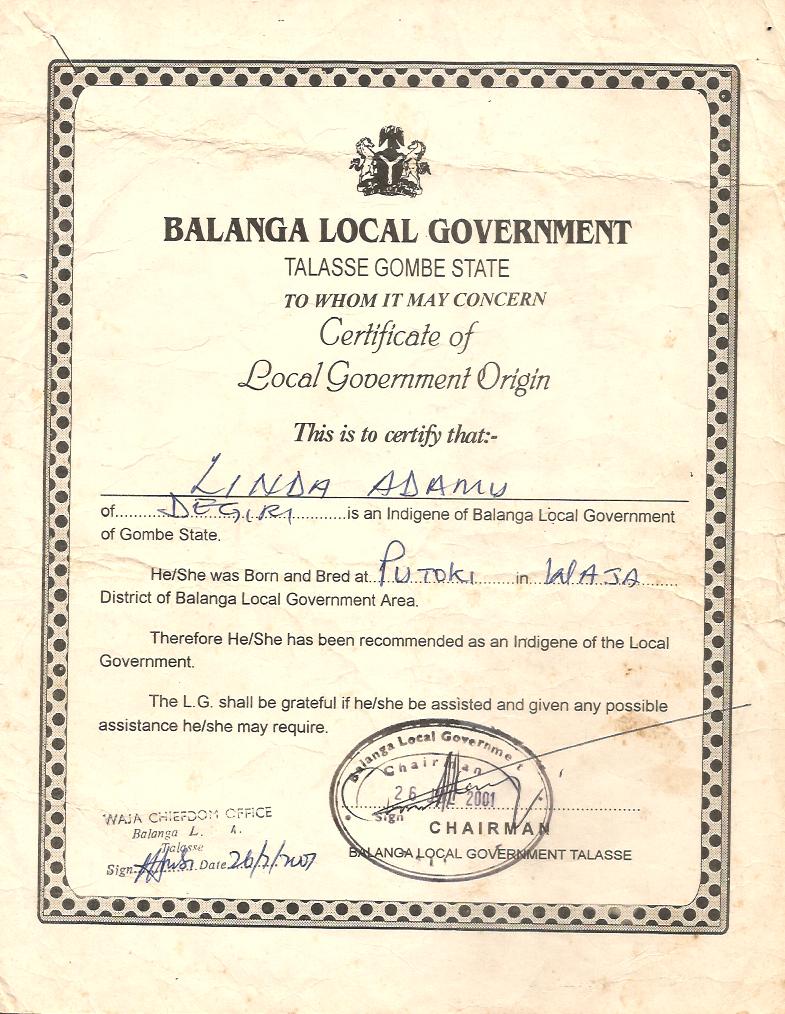 BALANGA LOCAL GOVERNMENT
TALASSE GOMBE STATE
TO WHOM IT MAY CONCERN
Certificate of
Local Government Origin
This is to certify that:-
LINDA ADAMU
of....DEGIRI....is an Indigene of Balanga Local Government
of Gombe State.
He/She was Born and Bred at..PUTOKI....in..WAJA....
District of Balanga Local Government Area.
Therefore He/She has been recommended as an Indigene of the Local
Government.
The L.G. shall be grateful if he/she be assisted and given any possible
assistance he/she may require.
Balanga Local Government
Chairman
26 2001
Sign
CHAIRMAN
BALANGA LOCAL GOVERNMENT TALASSE
WAJA CHIEFDOM OFFICE
Balanga L. A.
Talasse
Sign. Date